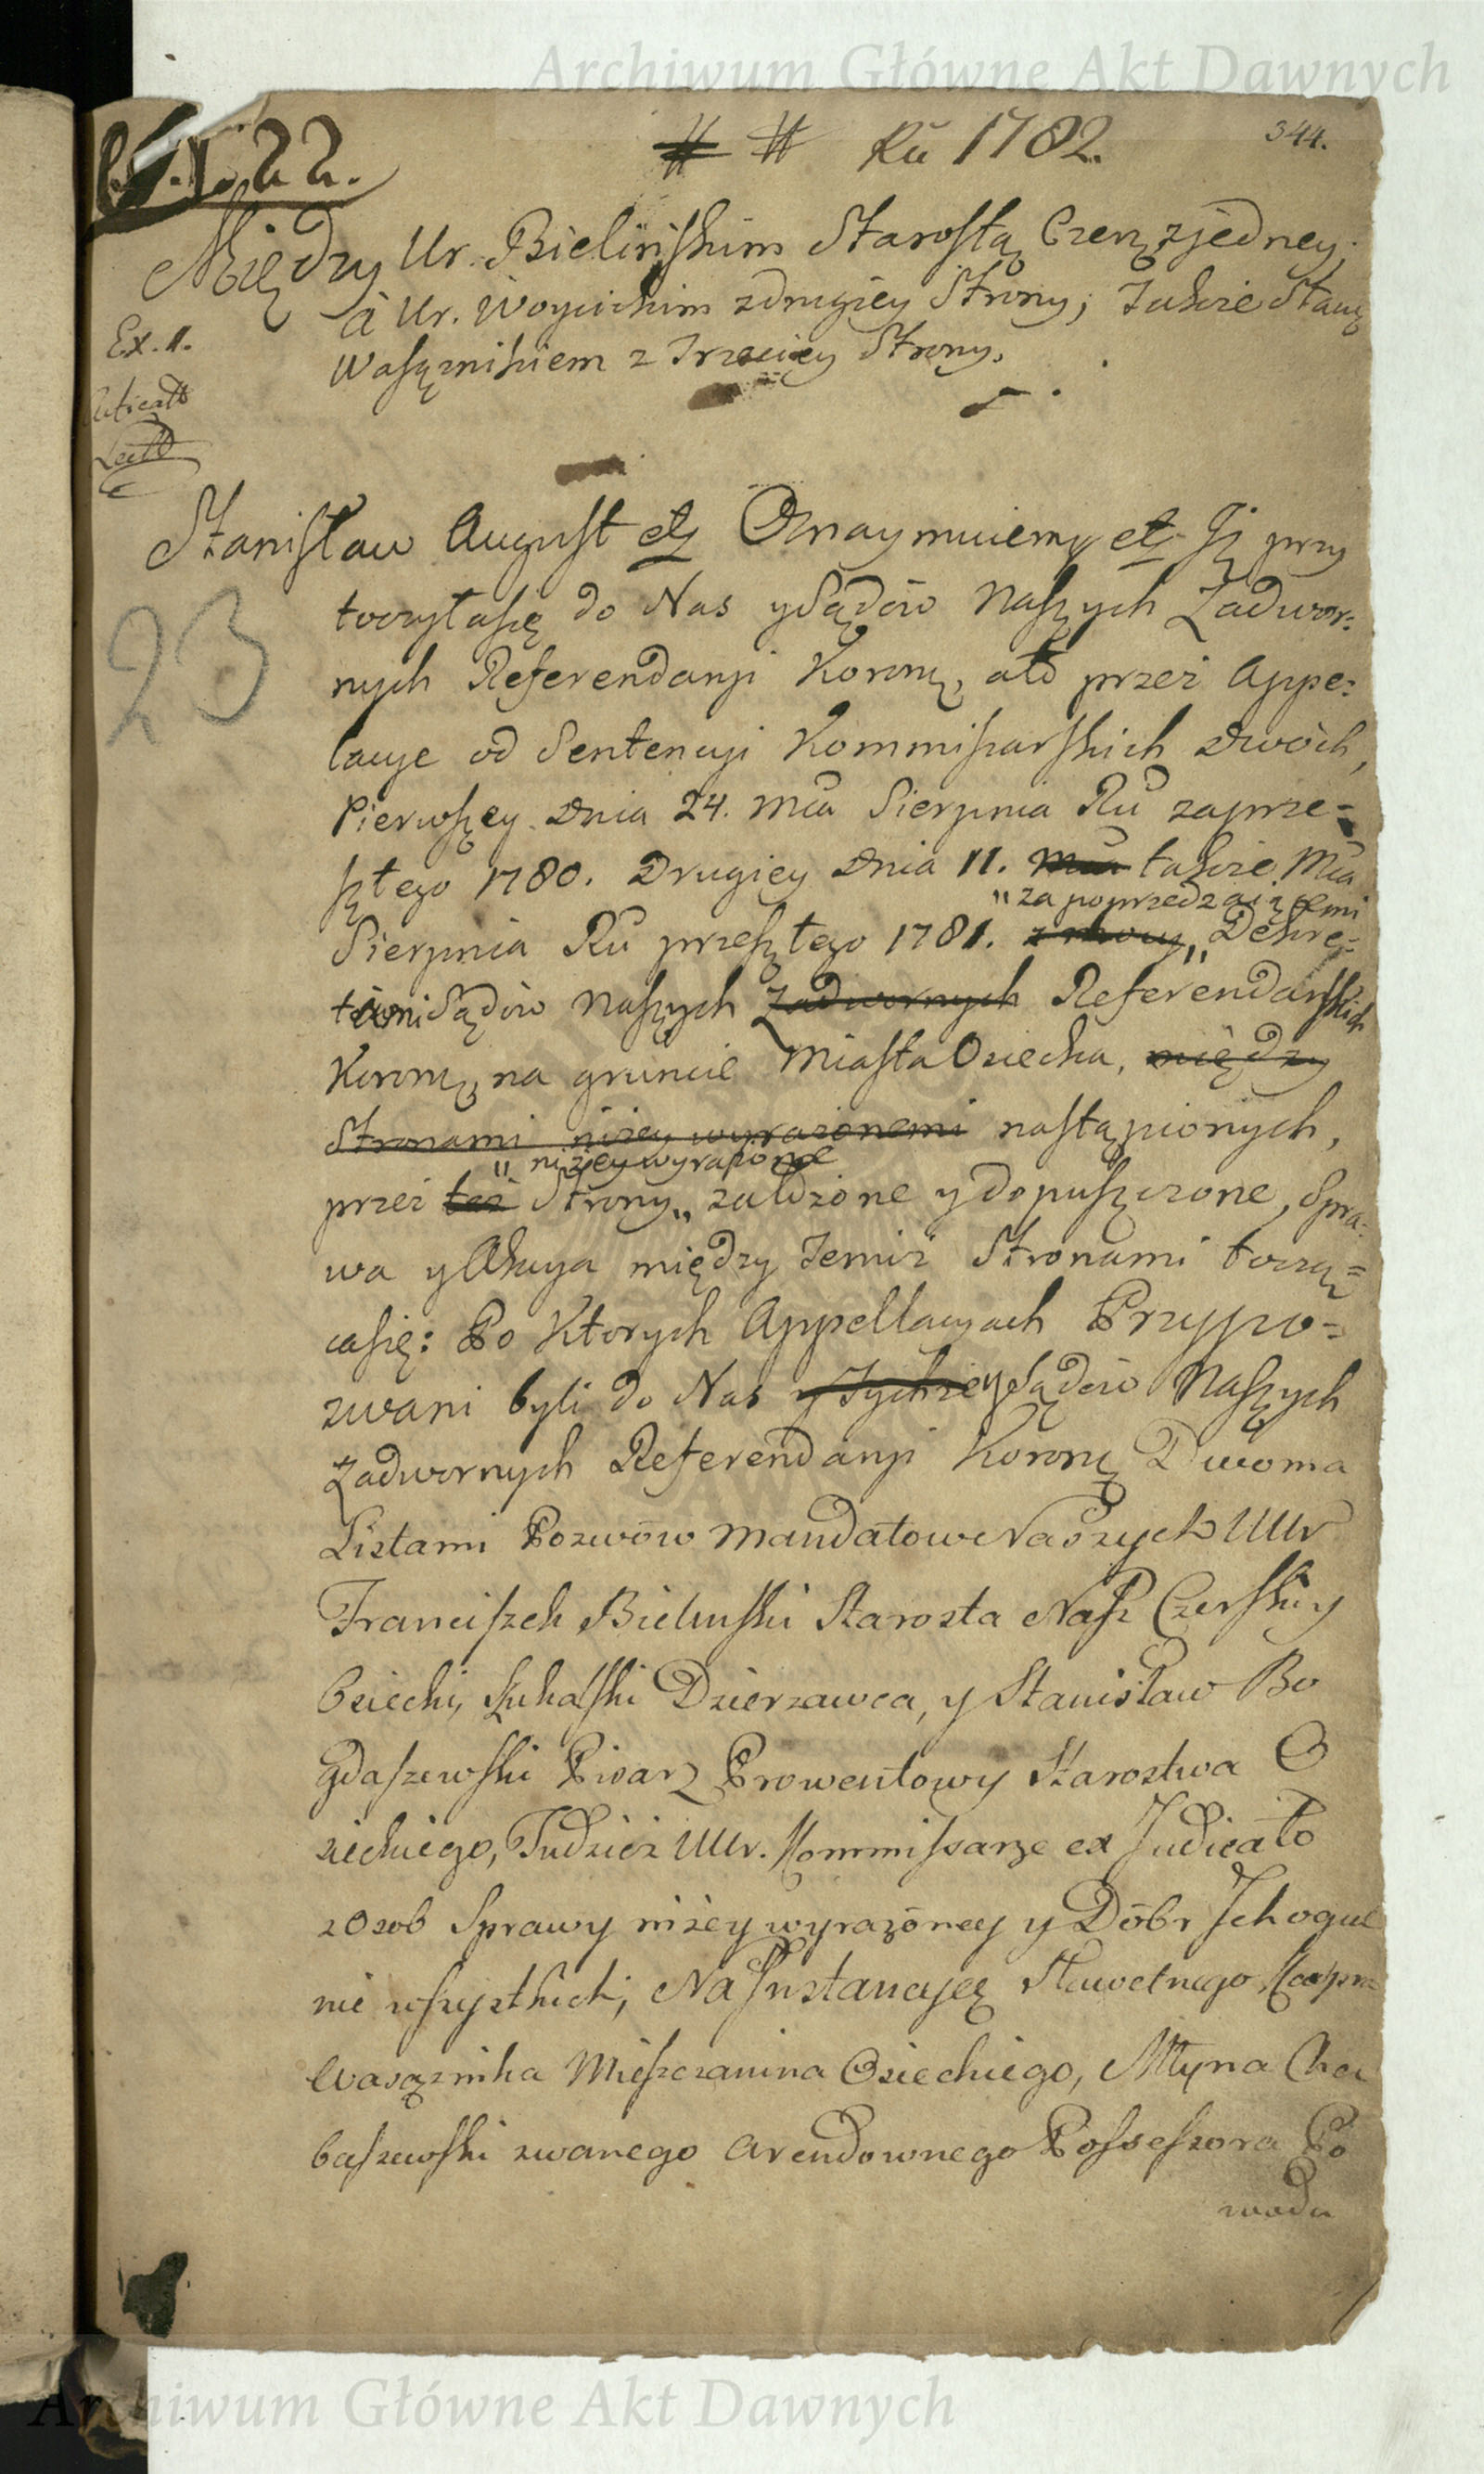 Archiwum Główne Akt Dawnych
22.
# # Rū 1782.
344.
Między Ur. Bielińskim Starostą Czersz jedney
à Ur. Woycickim zdrugiey Strony; Takze Sław
Wasąznikiem z Trzeciey Strony.
Ex. 1.
Lectt
Stanisław August etz Oznaymuiemy etz Jż przy
toczyłasię do Nas ySądów Naszych Zadwor:
23
nych Referendaryi Koronz, ato przez Appe:
lacye od Sentencyi Kommisarskich Dwóch,
Pierwszey Dnia 24. Mca Sierpnia Rū zaprze=
szłego 1780. Drugiey Dnia 11. Mca takze Mca
„za poprzedzaiącemi
Sierpnia Rū przeszłego 1781. z mocy „ Dekre=
tami Sądów Naszych Zadwornych Referendarskich
Koronz, na gruncie Miasta Osiecka, między
Stronami niżey wyrażonemi nastąpionych,
„ niżey wyrażone
przez też Strony „ założone y dopuszczone, Spra:
wa yAkcya między Temiż Stronami toczą=
casię: Po Których Appellacyach Przypo=
zwani byli do Nas y Tychże ySądów Naszych
Zadwornych Referendaryi Koronz Dwoma
Listami Pozwów Mandatow Naszych UUr
Franciszek Bielinski Starosta Nasz Czerski y
Osiecki, Łukalski Dzierzawca, y Stanisław Bo
gdaszewski Pisarz Prowentowy Starostwa O
sieckiego, Tudzież UUr. Kommissarze ex Judicato
z Osob Sprawy niżey wyrażoney y Dóbr Jch ogul
nie wszystkich; Na Jnstancyą Sławetnego Kaspra
Wasąznika Mieszczanina Osieckiego, Młyna Cha
baszewski zwanego arendownego Possessora Po
woda
Archiwum Główne Akt Dawnych